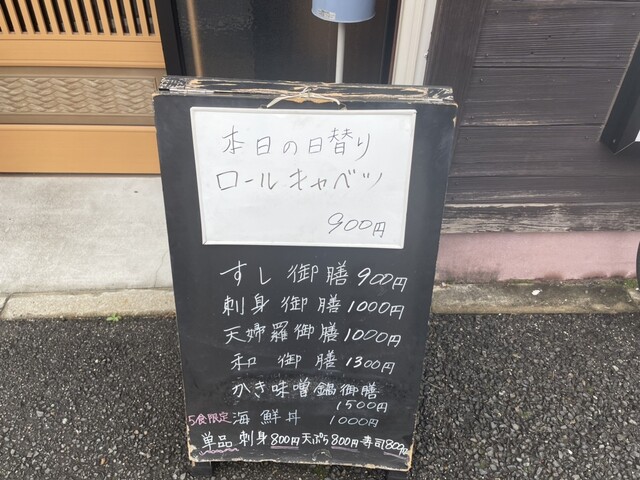 本日の日替り
ロールキャベツ
900円
すし御膳 900円
刺身御膳 1000円
天婦羅御膳 1000円
和御膳 1300円
かき味噌鍋御膳
1500円
5食限定 海鮮丼 1000円
単品 刺身 800円 天ぷら 800円 寿司 800円